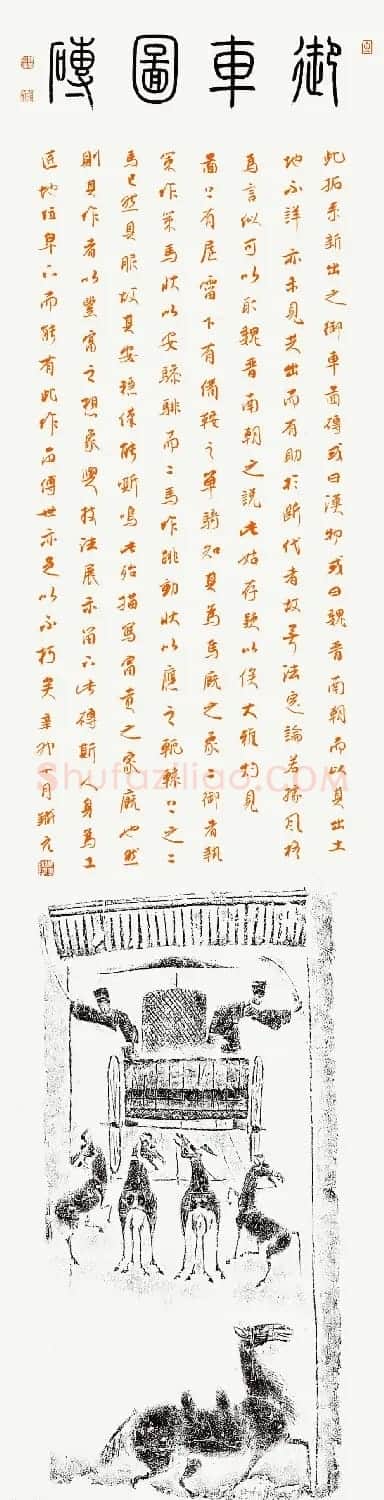 御車圖磚
此拓系新出之御車畫磚或曰漢物或曰魏晉南朝而以其出土
地不詳亦未見其出而有助於斷代者故無法定論若據風格
為言似可以取魏晉南朝之說此姑存疑以俟大雅灼見
畫上有屋霤下有備鞍之單騎知其為馬廄之象二御者執
策作策馬狀以安驂騑而二馬作跳動狀以應之軛轅上之二
馬已然具服故其安穩僅能嘶鳴此殆描寫富貴之家廄也然
則具作者以豐富之想象與技法展示當下此磚斯人身為工
匠地位卑下而能有此作而傳世亦足以不朽矣辛卯十月
Shufaziliao.COM